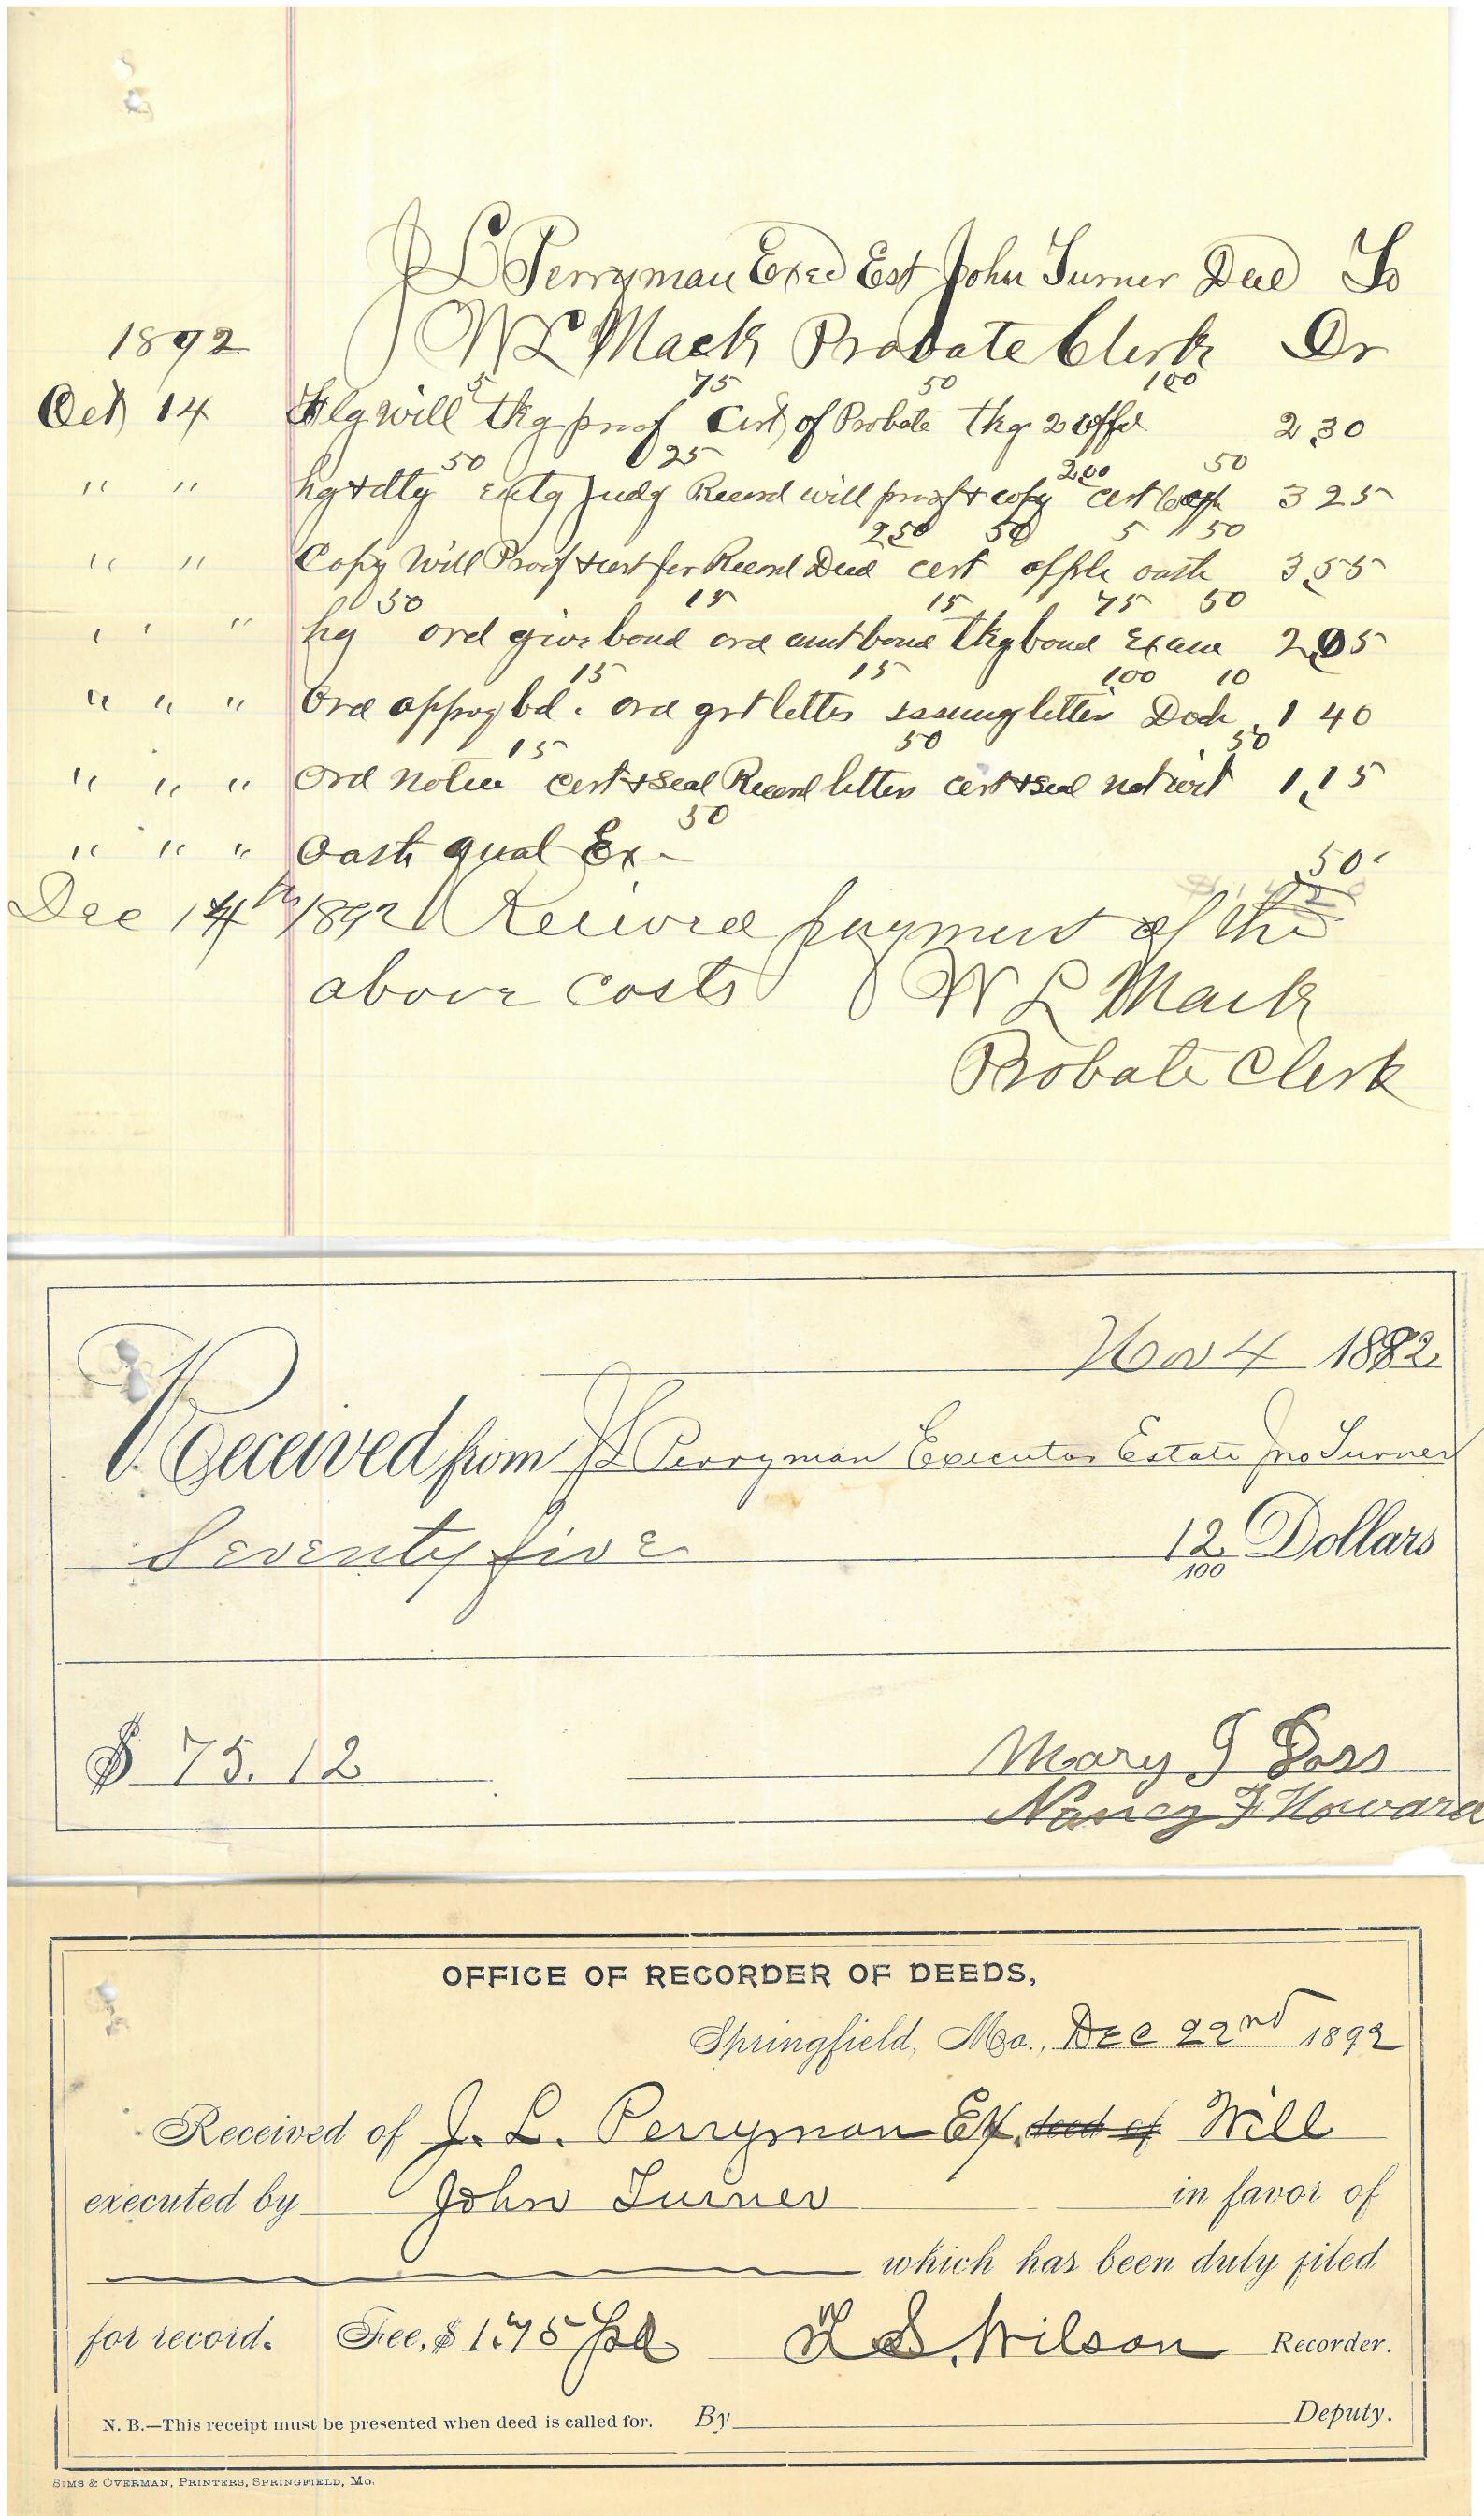 J L Perryman Exec Est John Turner Decd To
1892 W L Mack Probate Clerk Dr
5 75 50 100
Oct 14 Flg will tkg proof Cert of Probate tkg 2 affd 2.30
50 25 200 50
" " hg & dtg entg Judg Record will proof & copy cert 3 25
250 50 5 50
" " Copy Will Proof & cert for Record Deed cert oath 3.55
50 15 15 75 50
" " " hg ord give bond ord amt bond tkg bond Exam 2.05
15 15 100 10
" " " Ord approg bd. ord grt letters issuing letters Dock 1 40
15 50 50
" " " Ord notice cert & seal Record letters cert & seal 1.15
50
" " " Oath qual Ex - .50
Dec 14th 1892 Received payment of the
above costs W L Mack
Probate Clerk
Nov 4 1892
Received from J L Perryman Executor Estate Jno Turner
Seventy five 12/100 Dollars
$ 75.12 Mary J Doss
Nancy F Howard
OFFICE OF RECORDER OF DEEDS,
Springfield, Mo., Dec 22nd 1892
Received of J. L. Perryman Ex. deed of Will
executed by John Turner in favor of
which has been duly filed
for record. Fee, $ 1.75 pd S. Wilson Recorder.
N. B.—This receipt must be presented when deed is called for. By Deputy.
SIMS & OVERMAN, PRINTERS, SPRINGFIELD, MO.